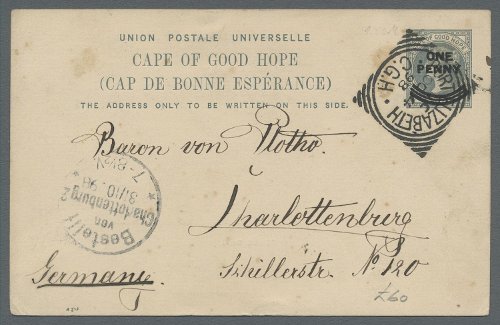 UNION POSTALE UNIVERSELLE
CAPE OF GOOD HOPE
(CAP DE BONNE ESPÉRANCE)
THE ADDRESS ONLY TO BE WRITTEN ON THIS SIDE.
OF GOOD HOPE
ONE
PENNY
ELIZABETH
C.G.H.
98
Baron von Plotho.
Charlottenburg
Schillerstr. No 120
Germany.
Bestellt
von
Charlottenburg 2
3/10.98
7-8½V
£60